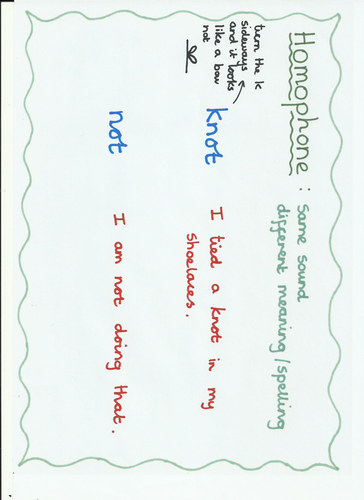 Homophone : Same sound
different meaning/spelling
turn the k
sideways
and it looks
like a bow
not
knot I tied a knot in my
shoelaces.
not I am not doing that.